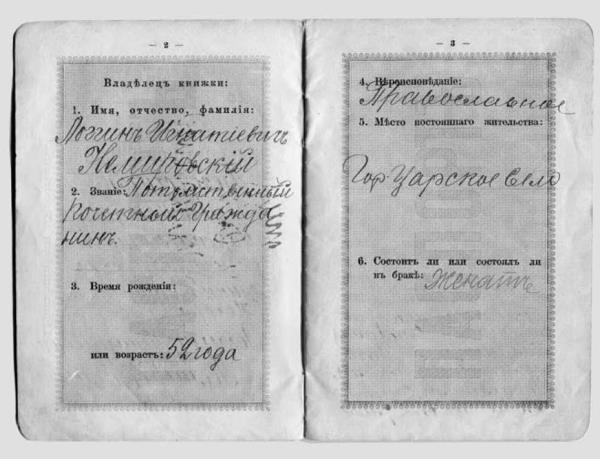 — 2 —
Владѣлецъ книжки:
1. Имя, отчество, фамилія:
Логгинъ Игнатіевичъ
Немировскій
2. Званіе: Потомственный
Почетный Гражда
нинъ.
3. Время рожденія:
или возрастъ: 52 года
— 3 —
4. Вѣроисповѣданіе:
Православное
5. Мѣсто постояннаго жительства:
Гор. Царское Село
6. Состоитъ ли или состоялъ ли
въ бракѣ: Женатъ